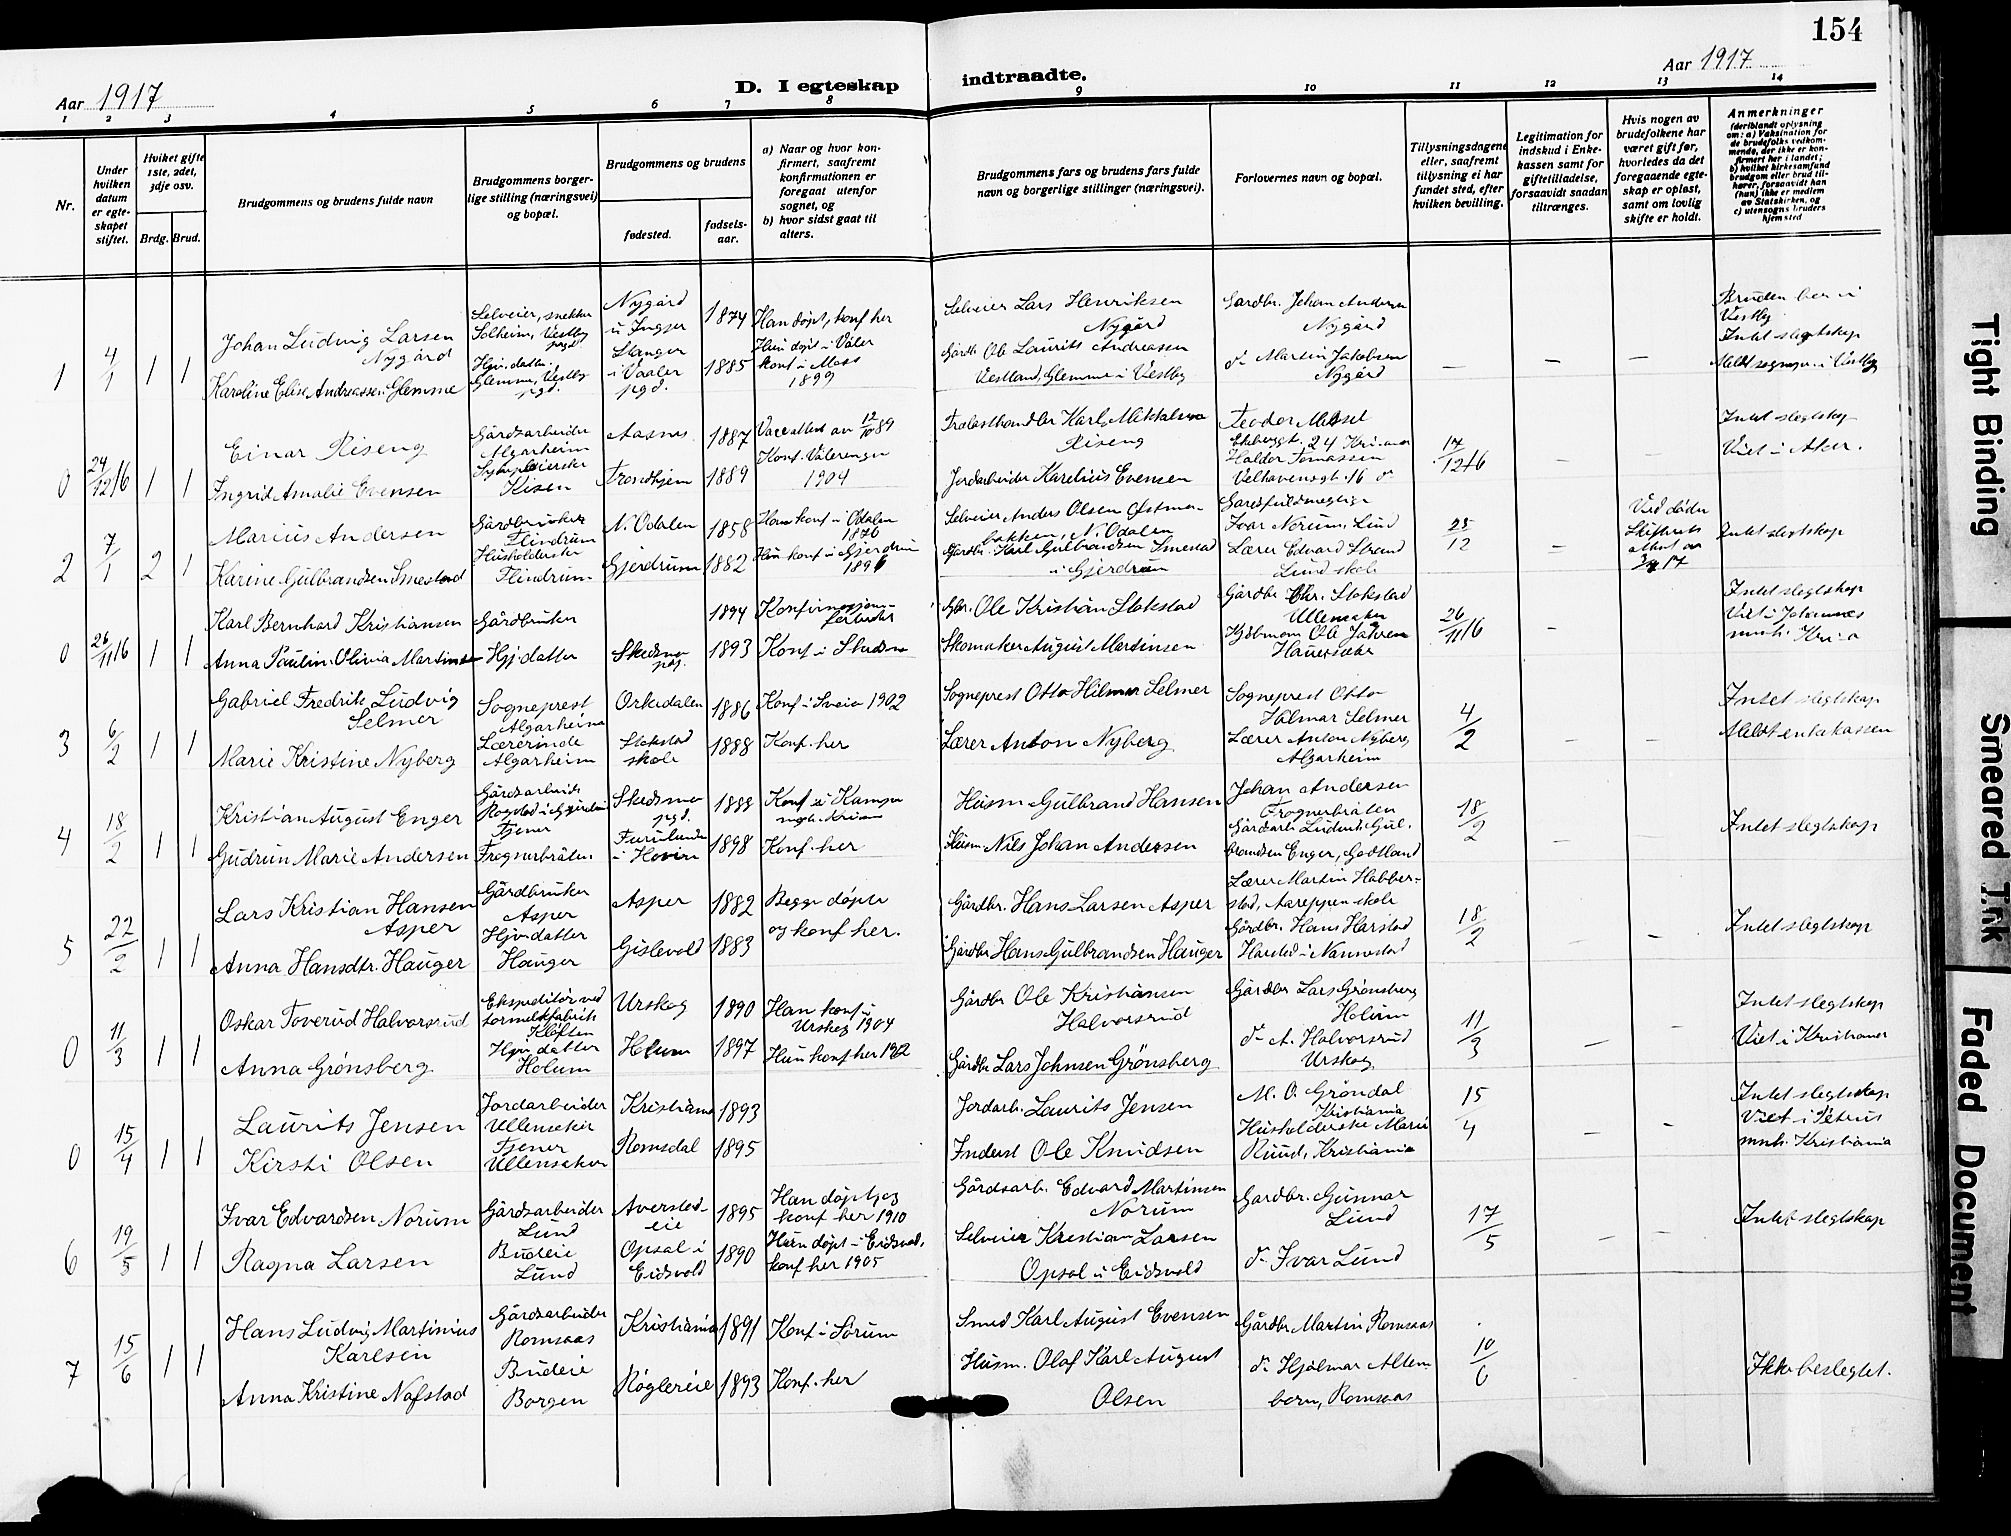 154
Aar 1917
D. I egteskap indtraadte.
Aar 1917
1 2 3 4 5 6 7 8 9 10 11 12 13 14
Nr.
Under hvilken datum er egteskapet stiftet.
Hvilket gifte 1ste, 2det, 3dje osv.
Brdg. Brud.
Brudgommens og brudens fulde navn
Brudgommens borgerlige stilling (næringsvei) og bopæl.
Brudgommens og brudens
fødested.
fødselsaar.
a) Naar og hvor konfirmert, saafremt konfirmationen er foregaat utenfor sognet, og
b) hvor sidst gaat til alters.
Brudgommens fars og brudens fars fulde navn og borgerlige stillinger (næringsvei).
Forlovernes navn og bopæl.
Tillysningsdagene eller, saafremt tillysning ei har fundet sted, efter hvilken bevilling.
Legitimation for indskud i Enkekassen samt for giftetilladelse, forsaavidt saadan tiltrænges.
Hvis nogen av brudefolkene har været gift før, hvorledes da det foregaaende egteskap er opløst, samt om lovlig skifte er holdt.
Anmerkninger
(deriblandt oplysning om: a) Vaksination for de brudefolks vedkommende, der ikke er konfirmert her i landet; b) hvilket kirkesamfund brudgom eller brud tilhører, forsaavidt han (hun) ikke er medlem av Statskirken, og c) utensogns bruders hjemsted
1 4/1 1 1
Johan Ludvig Larsen Nygård
Karoline Elise Andreassen Glemme
Selveier, snekker Solheim, Vestby pgd
Hjv. datter Glemme, Vestby pgd.
Nygård 1874
Stanger i Vaaler pgd. 1885
Han døpt, konf her
Hun døpt i Våler konf i Moss 1899
Selveier Lars Henriksen Nygård
Gårdbr Ole Laurits Andreassen Vestland, Glemme i Vestby
Gardbr. Johan Andersen Nygård
d- Martin Jakobsen Nygård
– – –
Bruden bor i Vestby
Intet slegtskap
Meldt sognepr. i Vestby
0 24/12 16 1 1
Einar Riseng
Ingrid Amalie Evensen
Gårdsarbeider Algarheim
Kisen
Aasnes 1887
Trondhjem 1889
Vacc attest av 12/10 89
Konf. Vålerengen 1904
Trælasthandler Karl Riseng
Jordarbeider Karelius Evensen
Teodor
Ekebergt. 24 Kr.ania
Haldor Tomassen Velhavensgt. 16 d-
17/12 16
– –
Intet slegtskap
Viet i Aker.
2 7/1 2 1
Marius Andersen
Karine Gulbrandsen Smestad
Gårdbruker Flindrum
Husholderske Flindrum
N. Odalen 1858
Gjerdrum 1882
Han konf i Odalen 1876
Hun konf i Gjerdrum
Selveier Anders Olsen Østmobakken, N. Odalen
Gårdbr. Karl Gulbrandsen Smestad i Gjerdrum
Gardsfuldmegtig Ivar Norum, Lund
Lærer Edvard Strand Lund skole
28/12
–
Ved døden
Skifterets attest av
Intet slegtskap
0 26/11 16 1 1
Karl Bernhard Kristiansen
Anna Paulin Olivia Martinsen
Gårdbruker
Hjv datter
1894
Skedsmo pgd. 1893
Konfirmasjons-
Konf i Skedsmo
Gbr. Ole Kristian Stokstad
Skomaker August Martinsen
Gårdbr Chr. Stokstad Ullensaker
Kjøbmann Ole
26/11 16
–
Intet slegtskap
Viet i Johannes mnh. Kr.ia
3 6/2 1 1
Gabriel Fredrik Ludvig Selmer
Marie Kristine Nyberg
Sogneprest Algarheim
Lærerinde Algarheim
Orkedalen 1886
Stokstad skole 1888
Konf i Sveio 1902
Konf. her
Sogneprest Otto Hilmar Selmer
Lærer Anton Nyberg
Sogneprest Otto Hilmar Selmer
Lærer Anton Nyberg Algarheim
4/2
– –
Intet slegtskap
Meldt enkekassen
4 18/2 1 1
Kristian August Enger
Gudrun Marie Andersen
Gårdsarbeider Rogstad i Gjerdrum
Tjener Frognerbråten
Skedsmo pgd. 1888
Furulund i Hovin 1898
Konf i Kampen mgh. Kr.ania
Konf. her
Husm Gulbrand Hansen
Husm. Nils Johan Andersen
Johan Andersen Frognerbråten
Gårdsarb Ludvik Gulbrandsen Enger, Godtland
18/2
– –
Intet slegtskap
5 22/2 1 1
Lars Kristian Hansen Asper
Anna Hansdtr. Hauger
Gårdbruker Asper
Hjv. datter Hauger
Asper 1882
Gislevold 1883
Begge døpte og konf her.
Gårdbr. Hans Larsen Asper
Gårdbr Hans Gulbrandsen Hauger
Lærer Martin Habberstad, Aareppen skole
Gårdbr. Hans Harstad Harstad i Nannestad
18/2
– –
Intet slegtskap
0 11/3 1 1
Oskar Toverud Halvorsrud
Anna Grønsberg
Ekspeditør ved tormelkfabrik Kløften
Hjv. datter Holum
Urskog 1890
Holum 1897
Han konf i Urskog 1904
Hun konf her 1912
Gårdbr Ole Kristiansen Halvorsrud
Gårdbr Lars Johnsen Grønsberg
Gårdbr Lars Grønsberg Holum
d- A. Halvorsrud Urskog
11/3
– –
Intet slegtskap
Viet i Kristiania
0 15/4 1 1
Laurits Jensen
Kirsti Olsen
Jordarbeider Ullensaker
Tjener Ullensaker
Kristiania 1893
Romsdal 1895
Jordarb. Laurits Jensen
Inderst Ole Knudsen
M. O. Grøndal Kristiania
Husholderske Marie Ruud, Kristiania
15/4
– –
Intet slegtskap
Viet i Petrus mnh. Kristiania
6 19/5 1 1
Ivar Edvardsen Norum
Ragna Larsen
Gårdsarbeider Lund
Budeie Lund
Averstadeie 1895
Opsal i Eidsvold 1890
Han døpt og konf her 1910
Hun døpt i Eidsvold, konf her 1905
Gårdsarb. Edvard Martinsen Norum
Selveier Kristian Larsen Opsal i Eidsvold
Gardbr. Gunnar Lund
d- Ivar Lund
17/5
– –
Intet slegtskap
7 15/6 1 1
Hans Ludvig Martinius Karlsen
Anna Kristine Nafstad
Gårdsarbeider Romsaas
Budeie Borgen
Kristiania 1891
Røglereie 1893
Konf. i Sørum
Konf. her
Smed Karl August Evensen
Husm. Olaf Karl August Olsen
Gårdbr Martin Romsaas
d- Hjalmar Altenborn, Romsaas
10/6
Ikke beslegtet.
Tight Binding
Smeared Ink
Faded Document